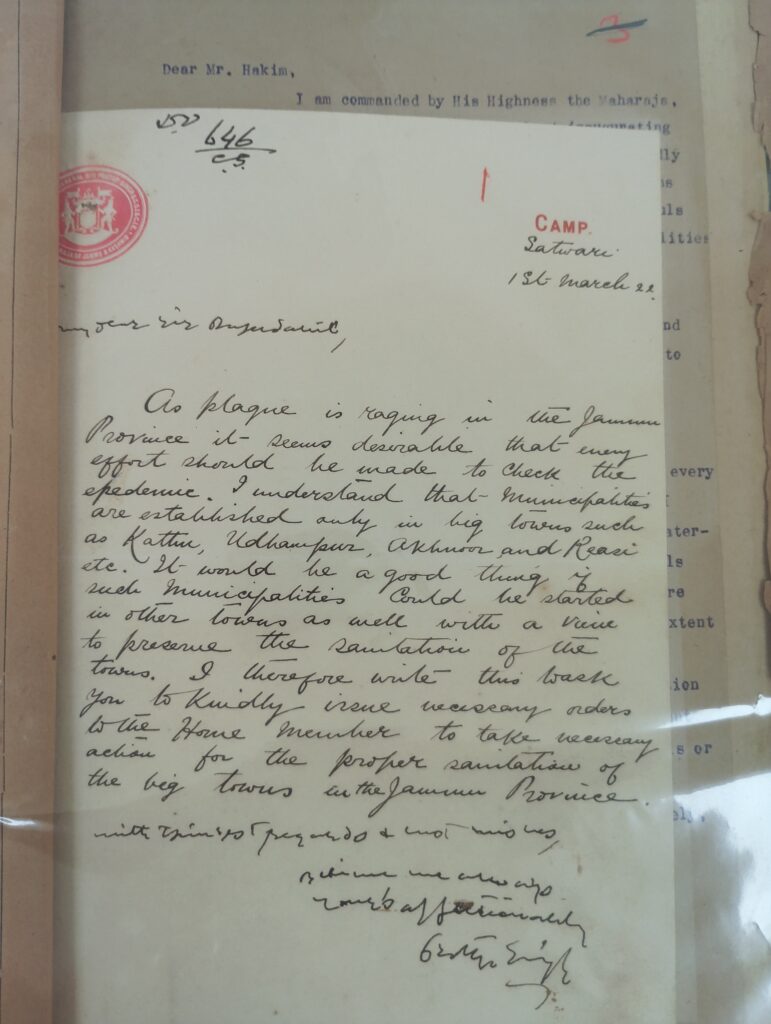 3
Dear Mr. Hakim,
I am commanded by His Highness the Maharaja,
646
C.S.
1
CAMP.
Satwari
1st March 22.
my dear Sir
As plague is raging in the Jammu
Province it seems desirable that every
effort should be made to check the
epedemic. I understand that Municipalities
are established only in big towns such
as Kathu, Udhampur, Akhnoor and Reasi
etc. It would be a good thing if
such Municipalities Could be started
in other towns as well with a view
to preserve the sanitation of the
towns. I therefore write this to ask
you to Kindly issue necessary orders
to the Home Member to take necessary
action for the proper sanitation of
the big towns in the Jammu Province.
with kindest regards &
me always
yours affectionately
Singh
nd
to
every
ater-
ls
re
xtent
sion
s or
ely,